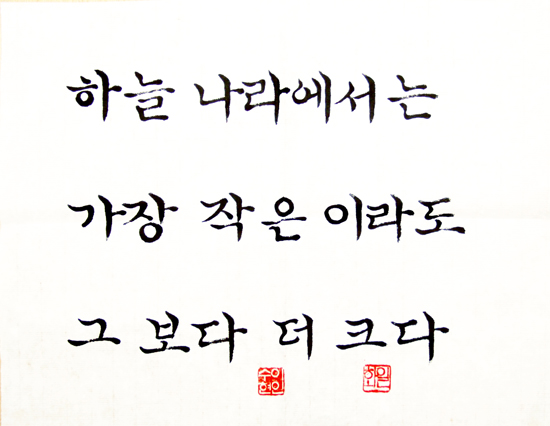 하늘 나라에서는
가장 작은 이라도
그 보다 더 크다